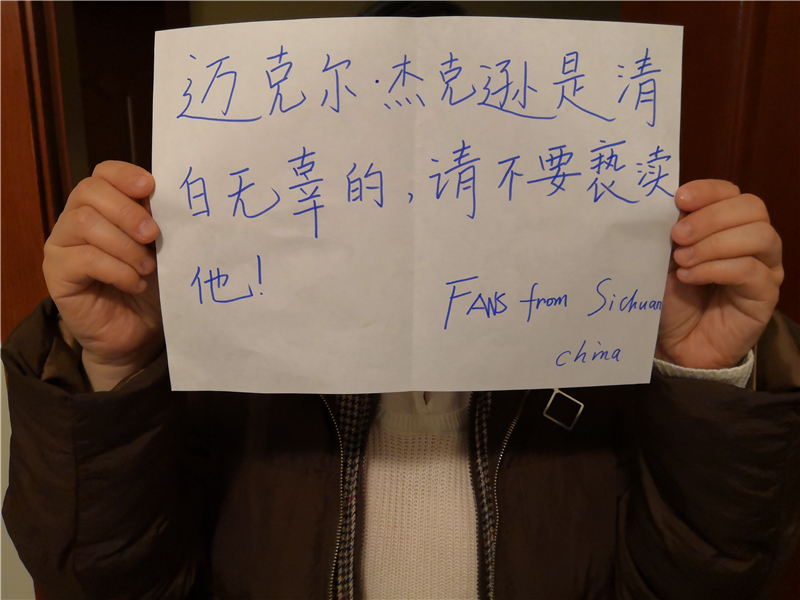 迈克尔·杰克逊是清
白无辜的,请不要亵渎
他!
FANS from Sichuan
china